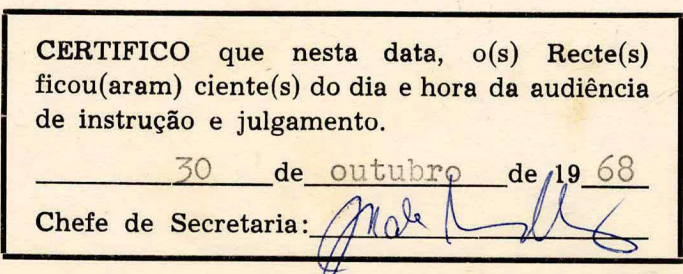 CERTIFICO que nesta data, o(s) Recte(s)
ficou(aram) ciente(s) do dia e hora da audiência
de instrução e julgamento.
30 de outubro de 19 68
Chefe de Secretaria: